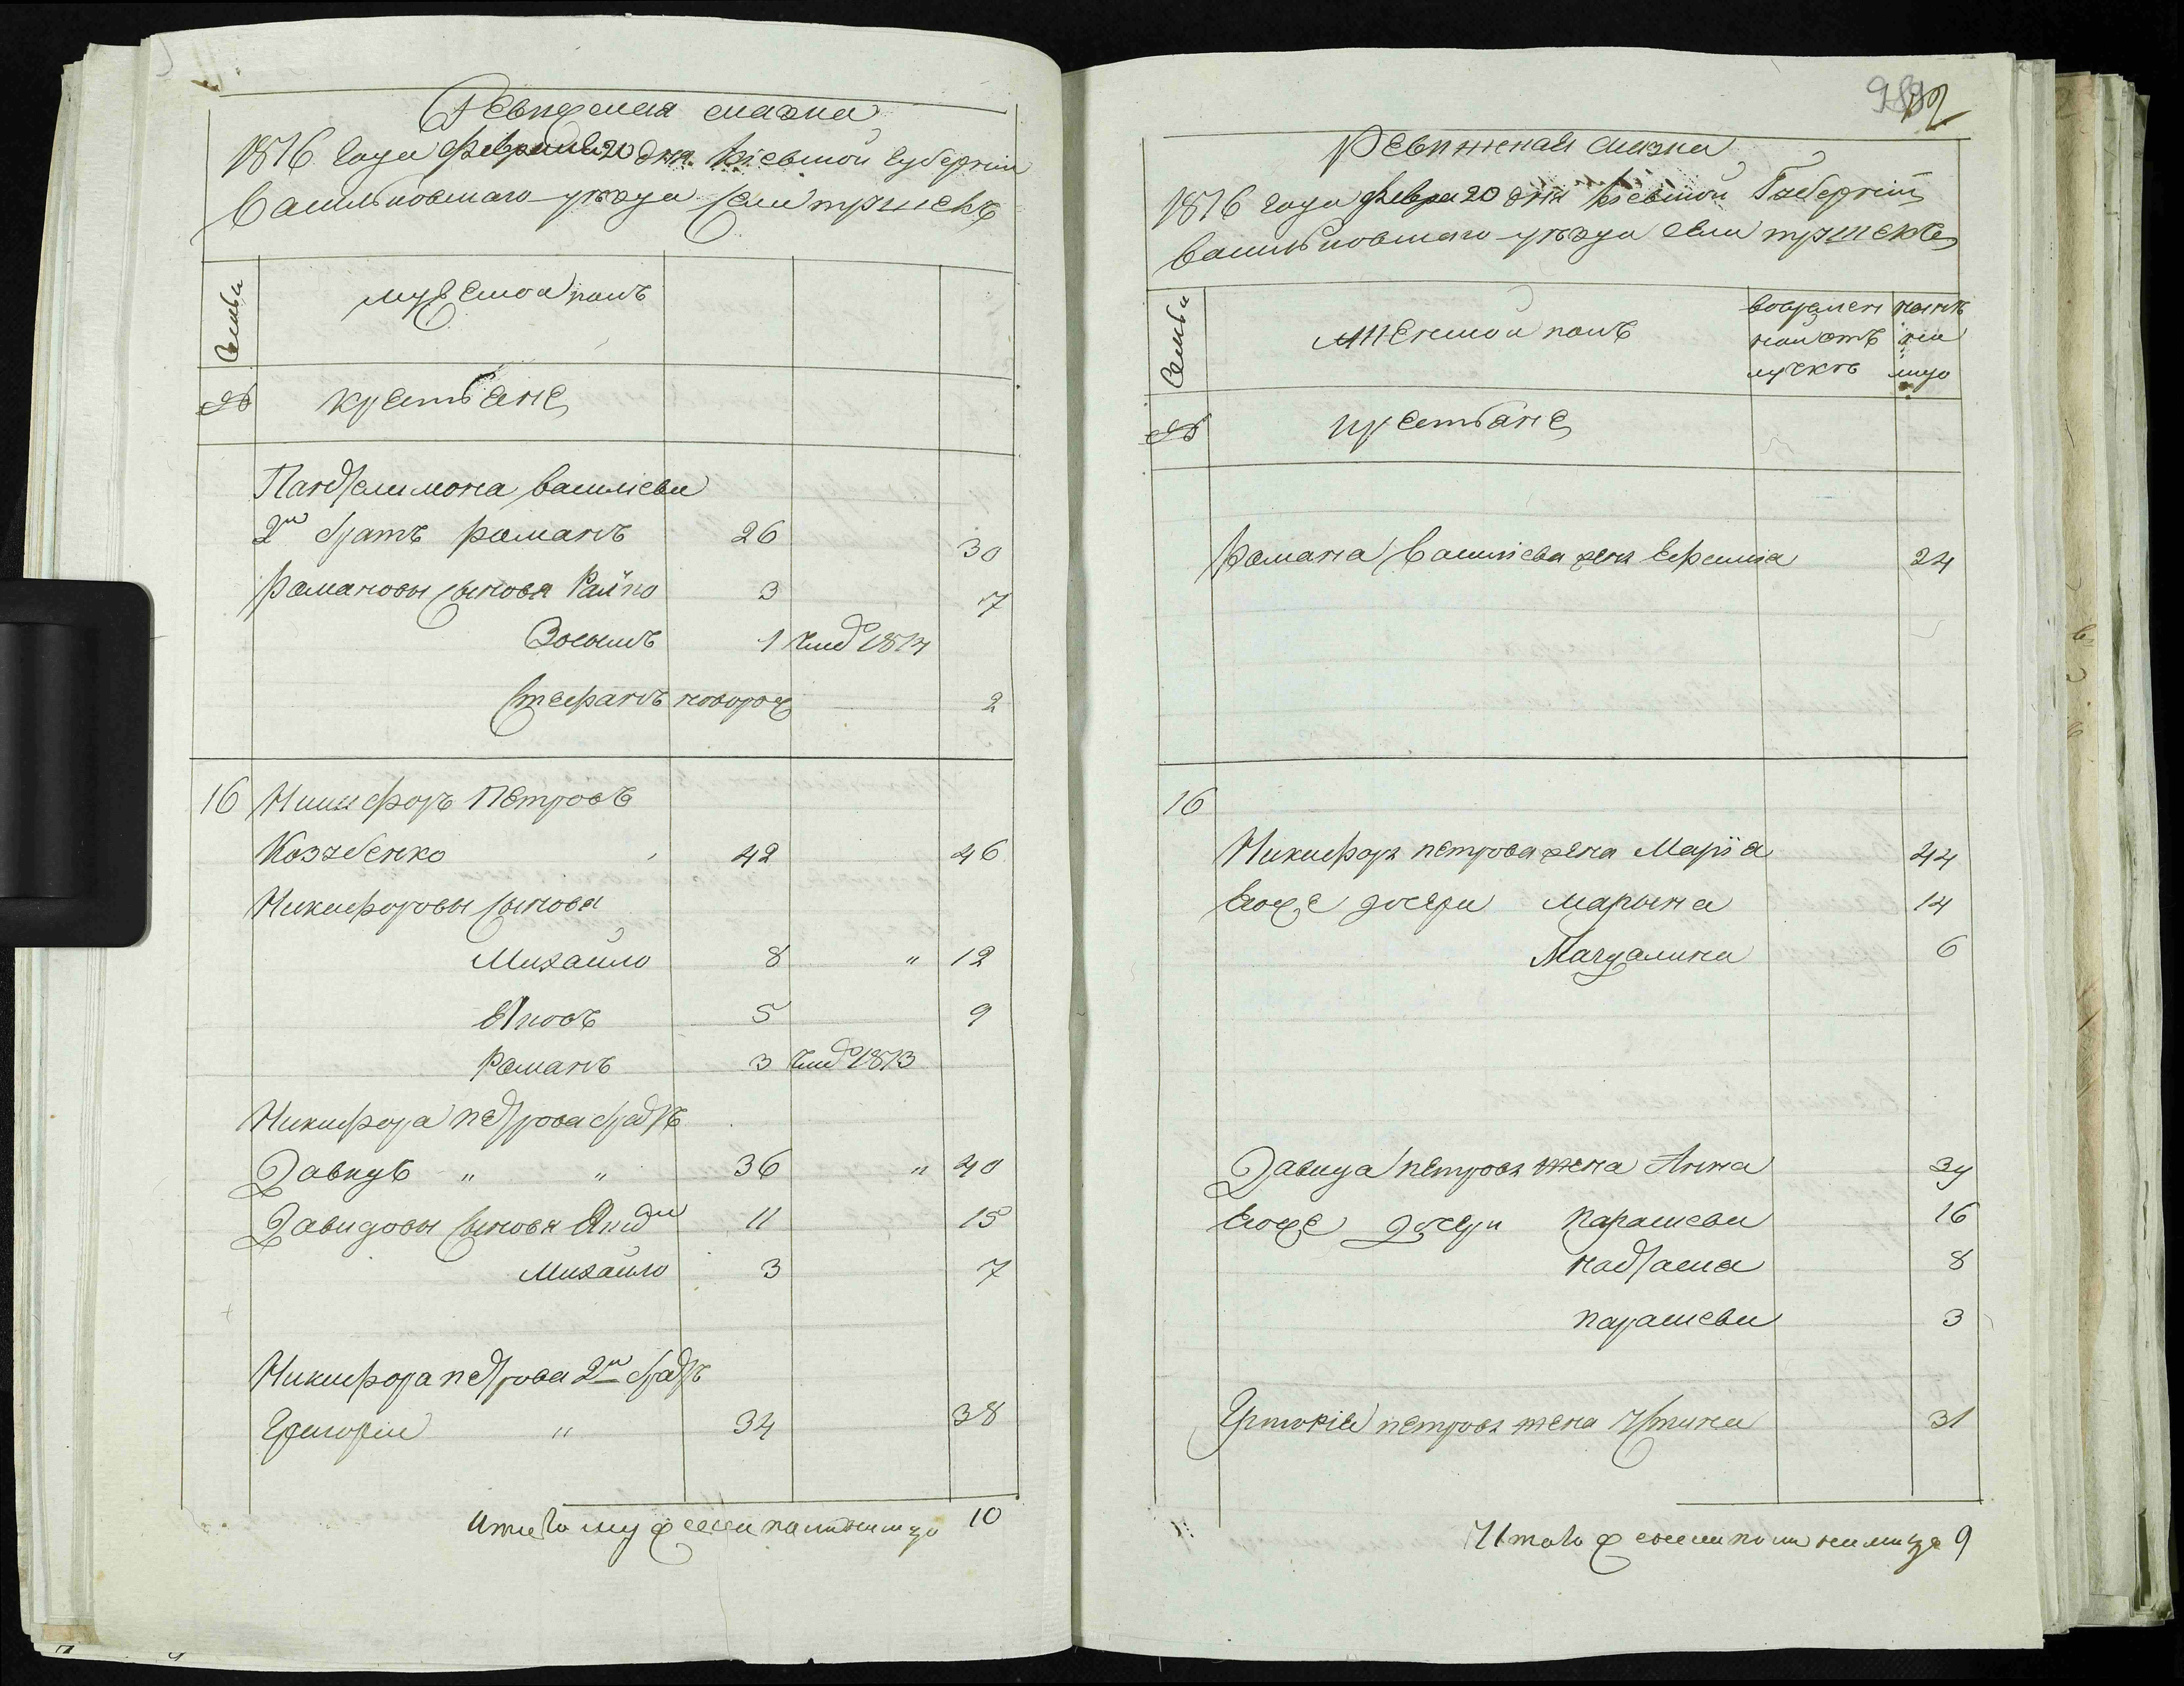 Ревизская сказка
1816 года февраля 20 дня Кіевской Губерніи
Васильковскаго уезда села
Семьи
мужеской полъ
№
крестьяне
Пантелимона Василіева
2й братъ Романъ 26 30
Романовы сыновя 3 7
1 умер 1814
Стефанъ новорож 2
16 Никифоръ Петровъ
Козубенко 42 46
Никифоровы сыновя
Михайло 8 " 12
Яковъ 5 9
Романъ 3 умер 1813
Никифора петрова братъ
Давидъ " " 36 " 40
Давидовы сыновя 11 15
Михайло 3 7
Никифора петрова 2й братъ
Григорій " 34 38
Итого мужеска пола налицо 10
982
Ревижская сказка
1816 года Февра 20 дня Кіевской Губерніи
Васильковскаго уезда села
Семьи
женской полъ
вовремен ной отъ лучке
ныне на лицо
№
крестьяне
Романа Василіева жена Ефросиніа 24
16
Никифора петрова жена Маріа 44
Егоже дочери Марина 14
Магдалина 6
Давида петрова жена Анна 34
Егоже дочери Параскева 16
наталиа 8
параскева 3
Григоріа петрова жена Устина 31
Итого женска пола налице 9